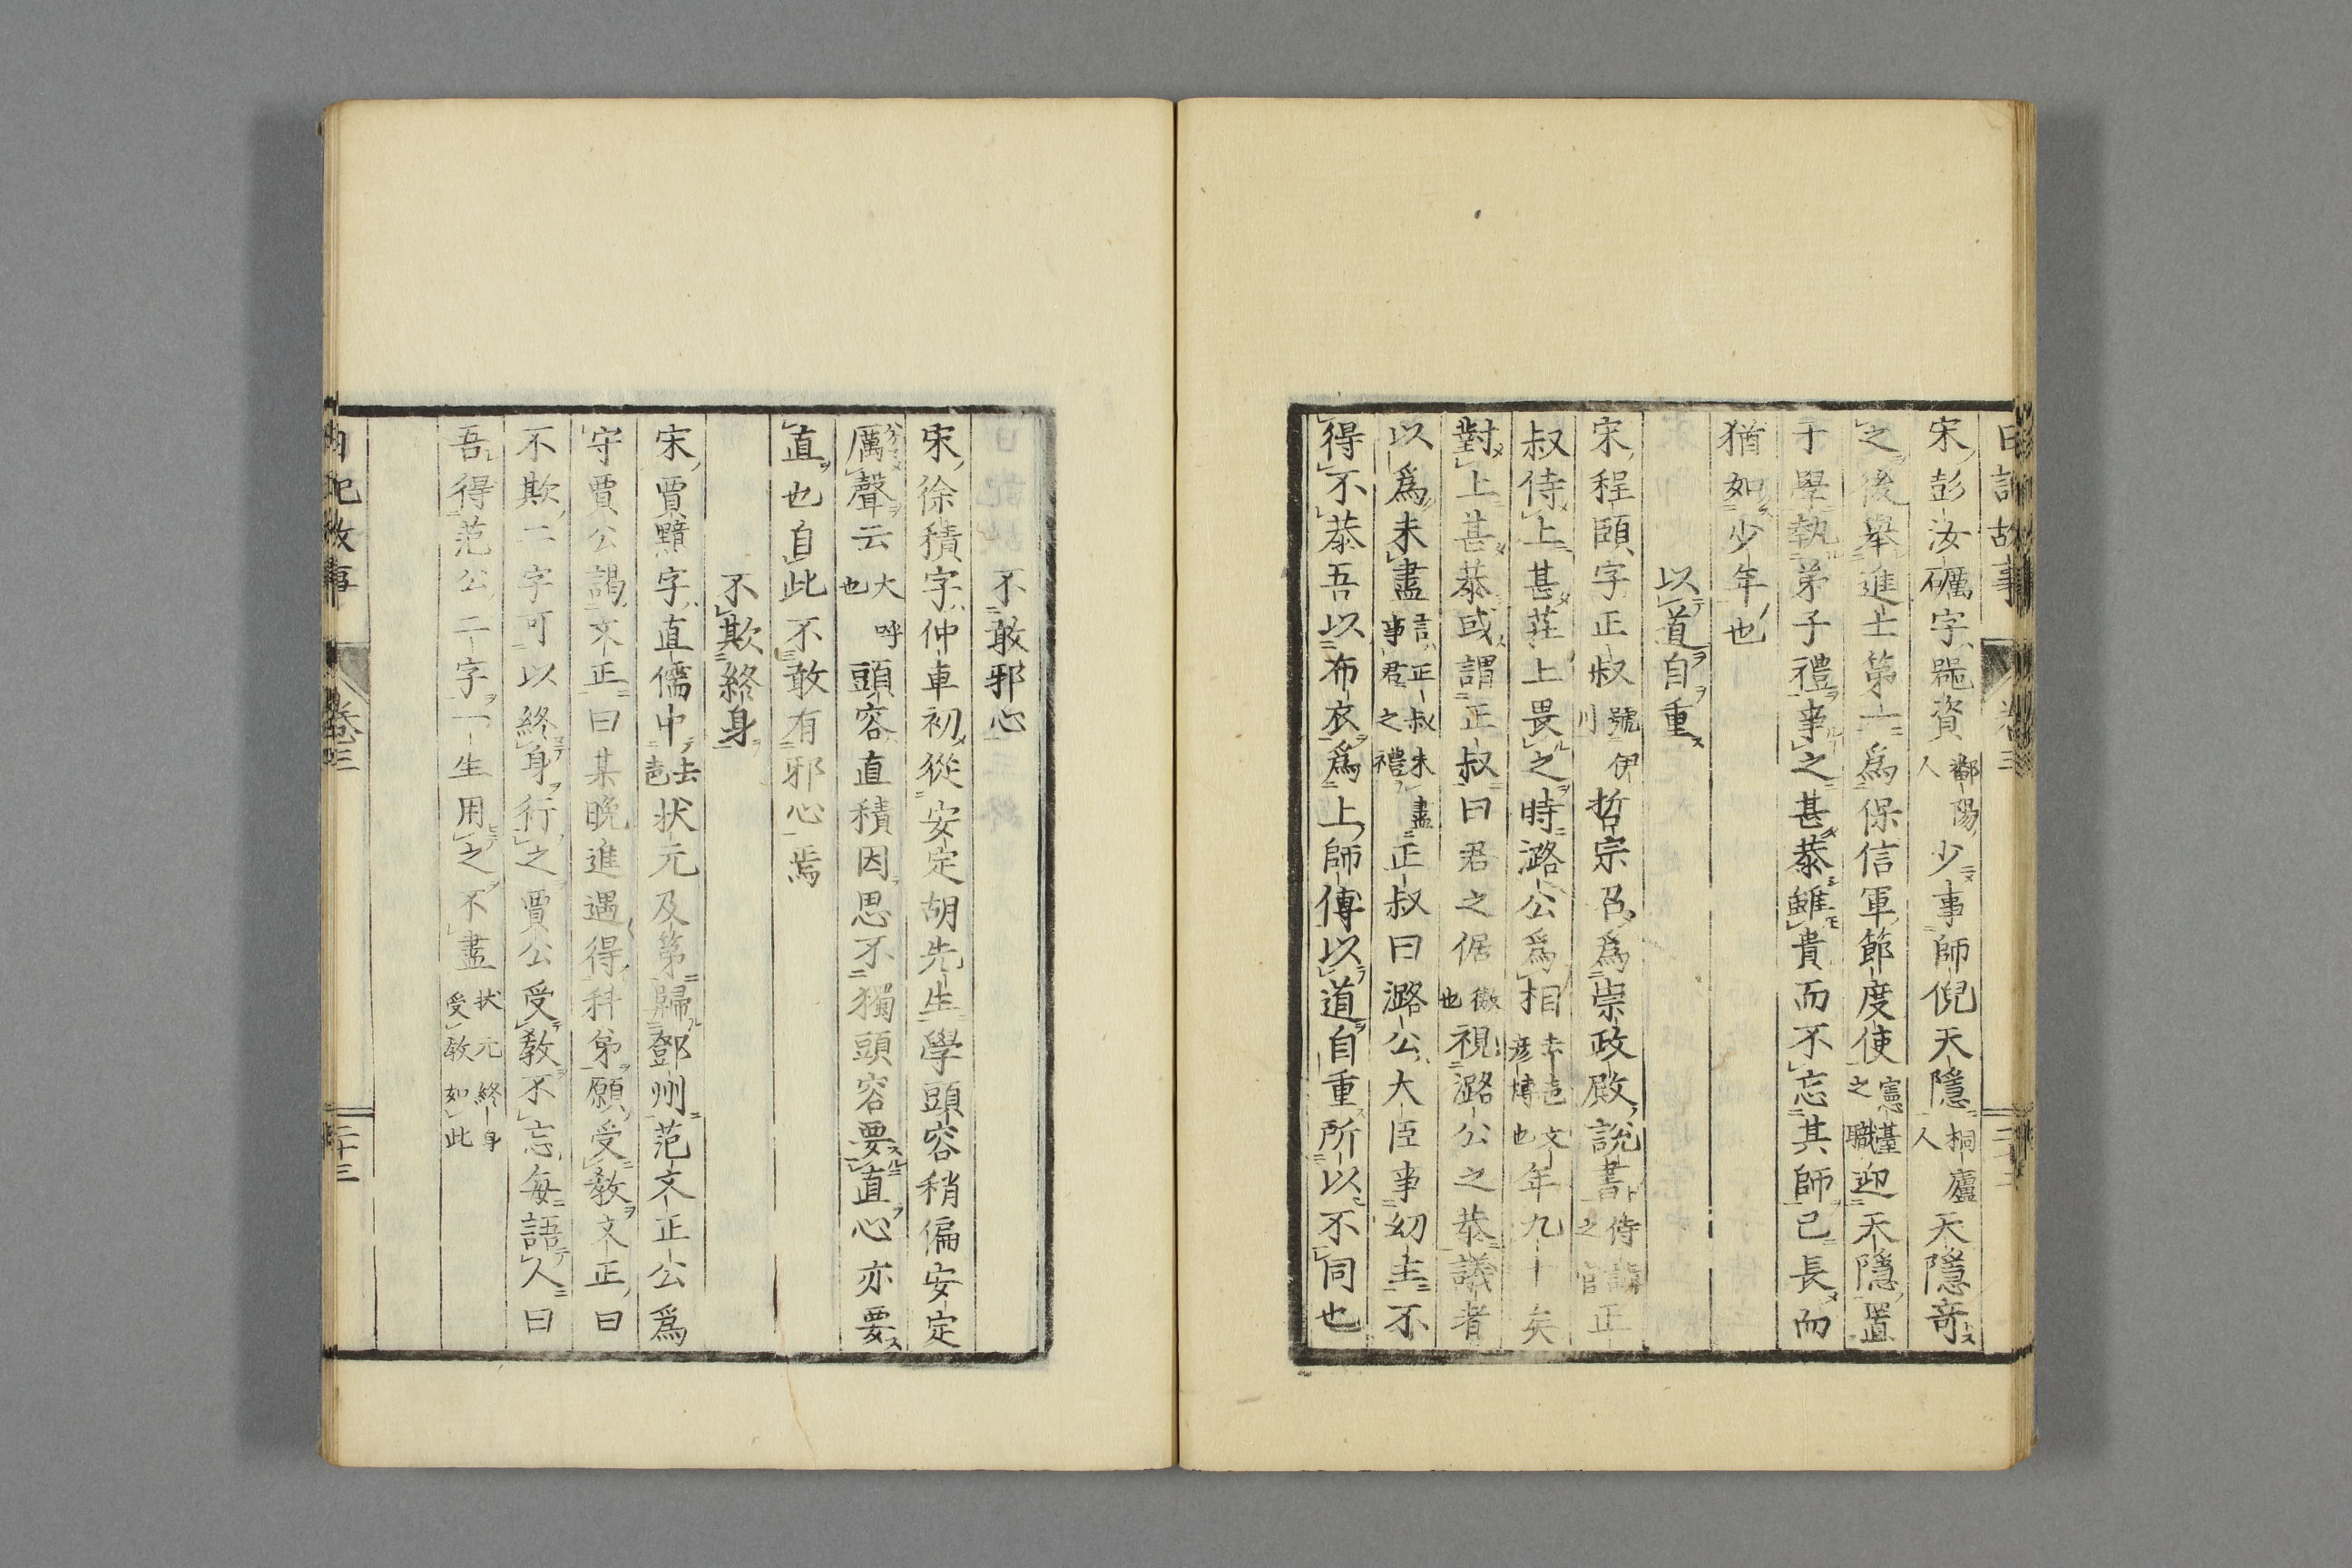 日記故事 卷三
宋彭汝礪字噐資鄱陽人少事師倪天隱桐廬人天隱竒
之後舉進士第一爲保信軍節度使憲臺之職迎天隱置
于學執弟子禮事之甚恭雖貴而不忘其師已長而
猶如少年也
以道自重
宋程頤字正叔號伊川哲宗召爲崇政殿說書侍講之官正
叔侍上甚莊上畏之時潞公爲相去邑文彥博也年九十矣
對上甚恭或謂正叔曰君之倨傲也視潞公之恭議者
以爲未盡言正叔未盡事君之禮正叔曰潞公大臣事幼主不
得不恭吾以布衣爲上師傅以道自重所以不同也
不敢邪心
宋徐積字仲車初從安定胡先生學頭容稍偏安定
厲聲云大呼也頭容直積因思不獨頭容要直心亦要
直也自此不敢有邪心焉
不欺終身
宋賈黯字直儒中去邑状元及第歸鄧州范文正公爲
守賈公謁文正曰某晚進遇得科第願受教文正曰
不欺二字可以終身行之賈公受教不忘每語人曰
吾得范公二字一生用之不盡状元終身受教如此
日記故事 卷三 二十三